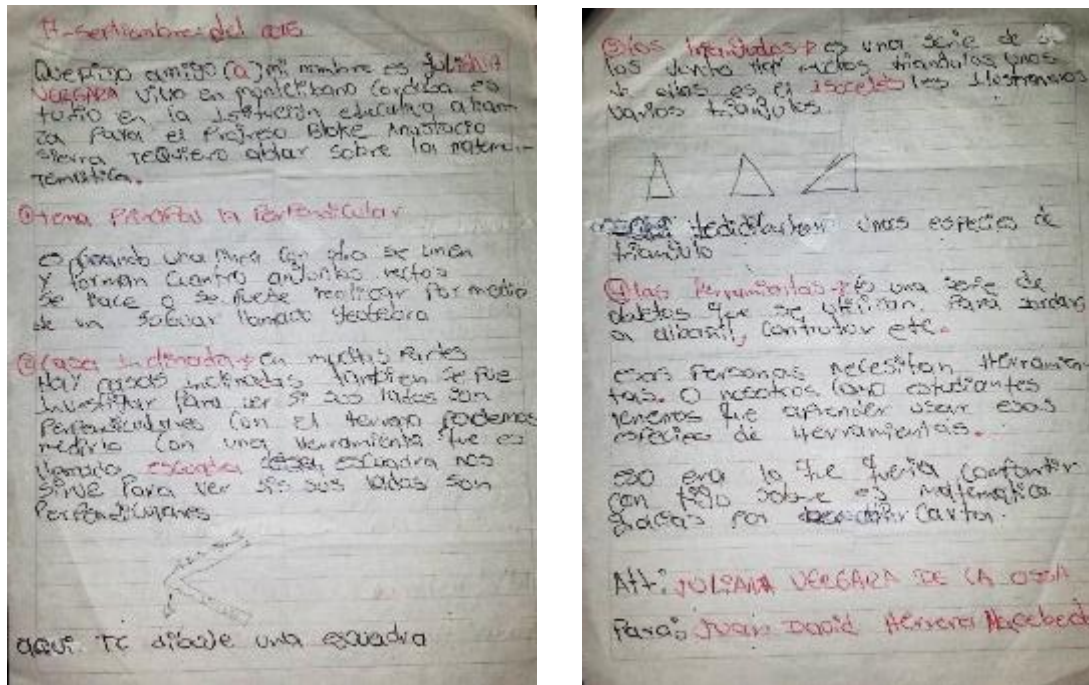 17-septiembre-del 2015
Querido amigo(a) mi nombre es JULIANA
VERGARA vivo en montelibano Cordoba es
tudio en la Istitución educativa alian
za Para el Progreso Bloke Anastacio
Sierra te quiero ablar sobre la matema-
tematica.
① tema Principal la Perpendicular
es cuando una linea con otra se unen
y forman cuantro angulos rectos
se hace o se puede realizar Por medio
de un llamado geogebra
② Casa inclinada → en muchas Partes
Hay casas inclinadas tambien se pue
investigar Para ver si sus lados son
Perpendiculares con el terreno podemos
medirlo con una Herramienta que es
llamado escuadra escuadra nos
sirve Para ver sis sus lados son
Perpendiculares
aqui TC dibuje una escuadra
③ los triangulos → es una serie de
los unos
de ellos es el isoceles les ilustraremos
varios triangulos.
te unas especies de
triangulo
④ las herramientas → es una serie de
objetos que se utilizan. Para
a albañil, contrutor etc.
esas Personas necesitan Herramien
tas. O nosotros como estudiantes
tenemos que aprender usar esas
especies de Herramientas.
eso era lo que queria
con tigo sobre matematica
gracias por Carton.
Att: JULIANA VERGARA DE LA OSSA
Para: Juan David Herrera